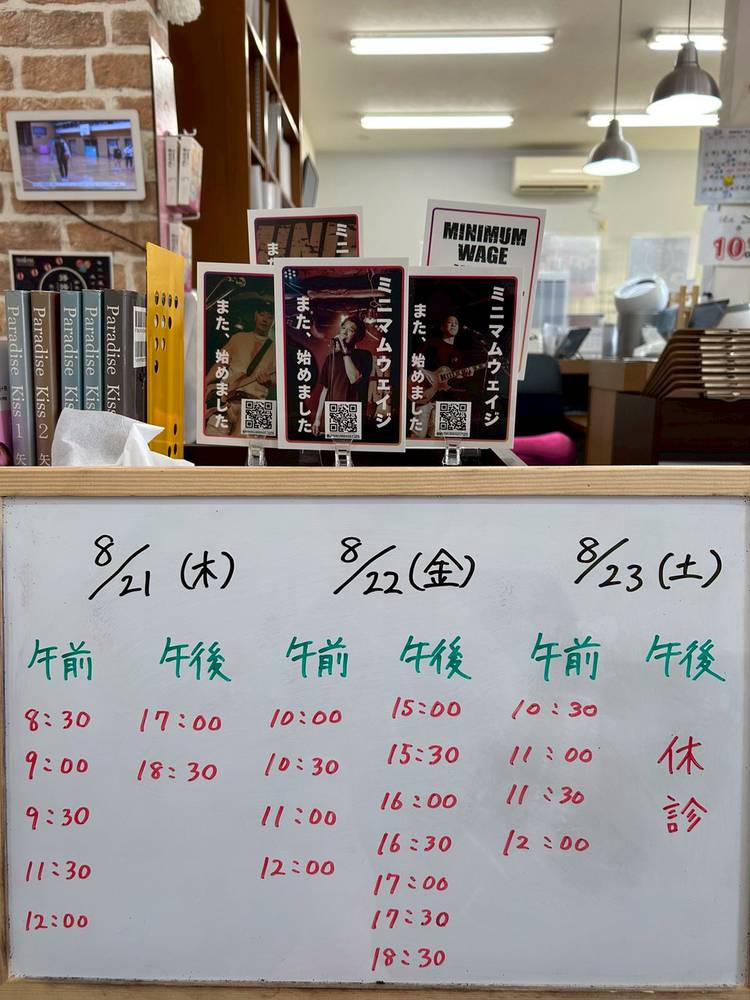 MINIMUM
WAGE
ミニ
また
Paradise Kiss 1 矢
Paradise Kiss 2
Paradise Kiss
Paradise Kiss
Paradise Kiss
ミニマムウェイジ
また、始めました
ミニマムウェイジ
また、始めました
ミニマムウェイジ
また、始めました
10
8/21 (木) 8/22 (金) 8/23 (土)
午前 午後 午前 午後 午前 午後
8:30 17:00 10:00 15:00 10:30 休診
9:00 18:30 10:30 15:30 11:00
9:30 11:00 16:00 11:30
11:30 12:00 16:30 12:00
12:00 17:00
17:30
18:30